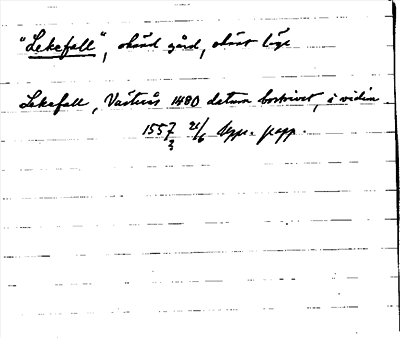 "Lekefall", okänd gård, okänt läge
Lekefall, Västerås 1480 datum bortrivet, i vidim.
1557 21/6 Upps. papp.
?